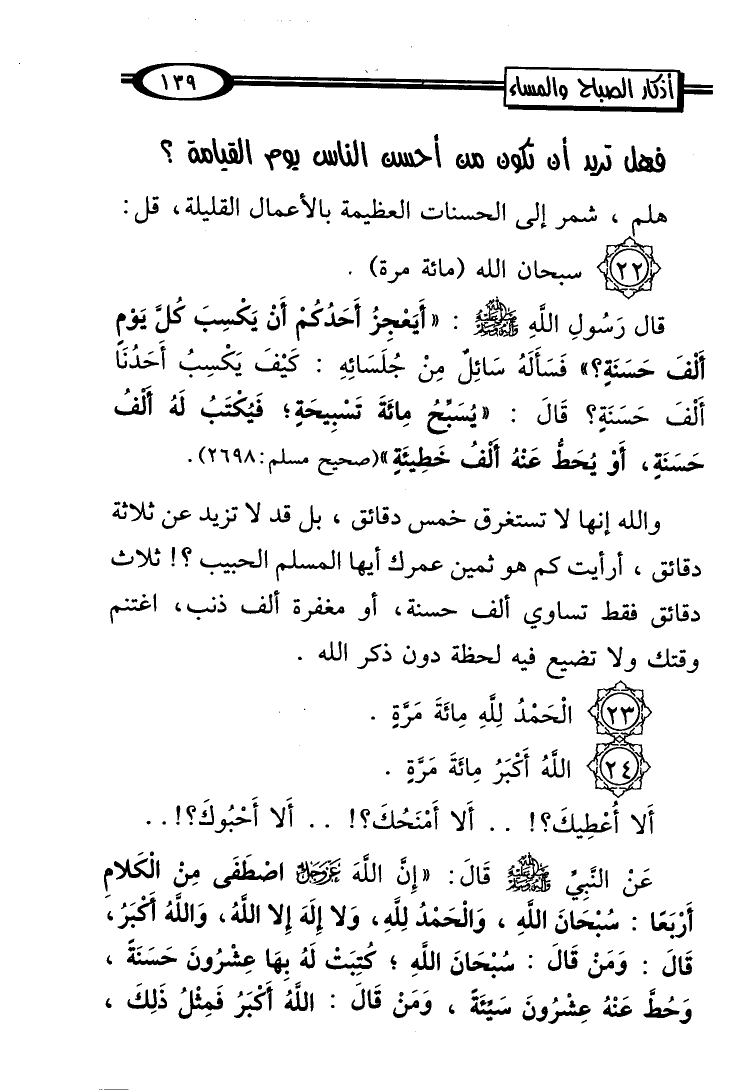 أذكار الصباح والمساء
١٣٩
فهل تريد أن تكون من أحسن الناس يوم القيامة ؟
هلم ، شمر إلى الحسنات العظيمة بالأعمال القليلة، قل:
٢٢ سبحان الله (مائة مرة) .
قال رَسُولِ اللَّهِ ﷺ : «أَيَعْجِزُ أَحَدُكُمْ أَنْ يَكْسِبَ كُلَّ يَوْمٍ
أَلْفَ حَسَنَةٍ؟» فَسَأَلَهُ سَائِلٌ مِنْ جُلَسَائِهِ : كَيْفَ يَكْسِبُ أَحَدُنَا
أَلْفَ حَسَنَةٍ؟ قَالَ : «يُسَبِّحُ مِائَةَ تَسْبِيحَةٍ؛ فَيُكْتَبُ لَهُ أَلْفُ
حَسَنَةٍ، أَوْ يُحَطُّ عَنْهُ أَلْفُ خَطِيئَةٍ»(صحيح مسلم:٢٦٩٨).
والله إنها لا تستغرق خمس دقائق ، بل قد لا تزيد عن ثلاثة
دقائق ، أرأيت كم هو ثمين عمرك أيها المسلم الحبيب ؟! ثلاث
دقائق فقط تساوي ألف حسنة، أو مغفرة ألف ذنب، اغتنم
وقتك ولا تضيع فيه لحظة دون ذكر الله .
٢٣ الْحَمْدُ لِلَّهِ مِائَةَ مَرَّةٍ .
٢٤ اللَّهُ أَكْبَرُ مِائَةَ مَرَّةٍ .
أَلا أُعْطِيكَ؟! .. أَلا أَمْنَحُكَ؟! .. أَلا أَحْبُوكَ؟!..
عَنْ النَّبِيِّ ﷺ قَالَ: «إِنَّ اللَّهَ عَزَّ وَجَلَّ اصْطَفَى مِنْ الْكَلامِ
أَرْبَعًا : سُبْحَانَ اللَّهِ ، وَالْحَمْدُ لِلَّهِ، وَلا إِلَهَ إِلا اللَّهُ، وَاللَّهُ أَكْبَرُ،
قَالَ : وَمَنْ قَالَ : سُبْحَانَ اللَّهِ ؛ كُتِبَتْ لَهُ بِهَا عِشْرُونَ حَسَنَةً ،
وَحُطَّ عَنْهُ عِشْرُونَ سَيِّئَةً ، وَمَنْ قَالَ : اللَّهُ أَكْبَرُ فَمِثْلُ ذَلِكَ ،